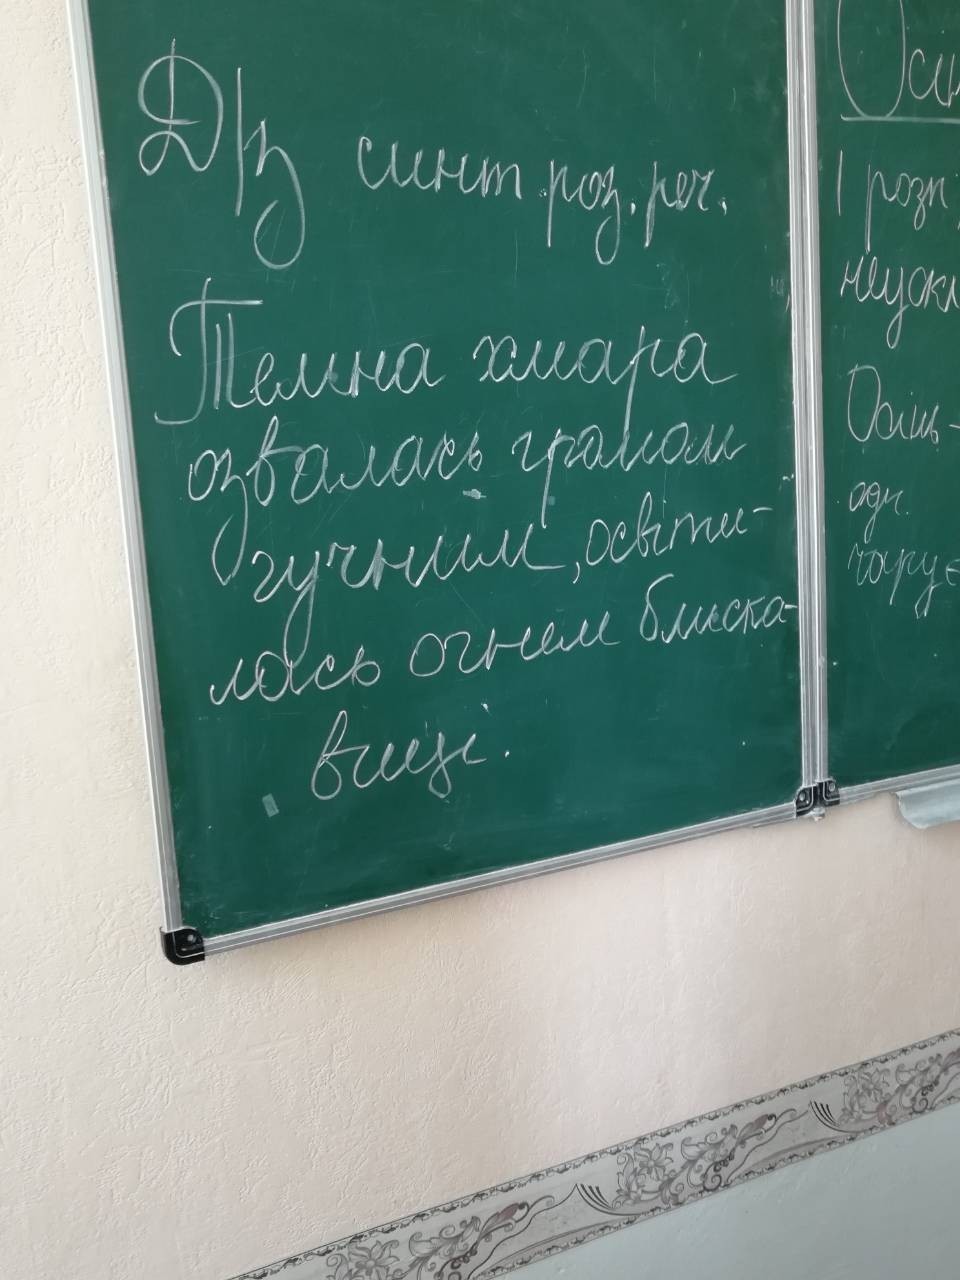 Д/з синт.роз.реч.
Темна хмара
озвалась громом
гучним, освіти-
лась огнем блиска-
виці.
І розп.,
неускл
Осінь -
одн.
чарує